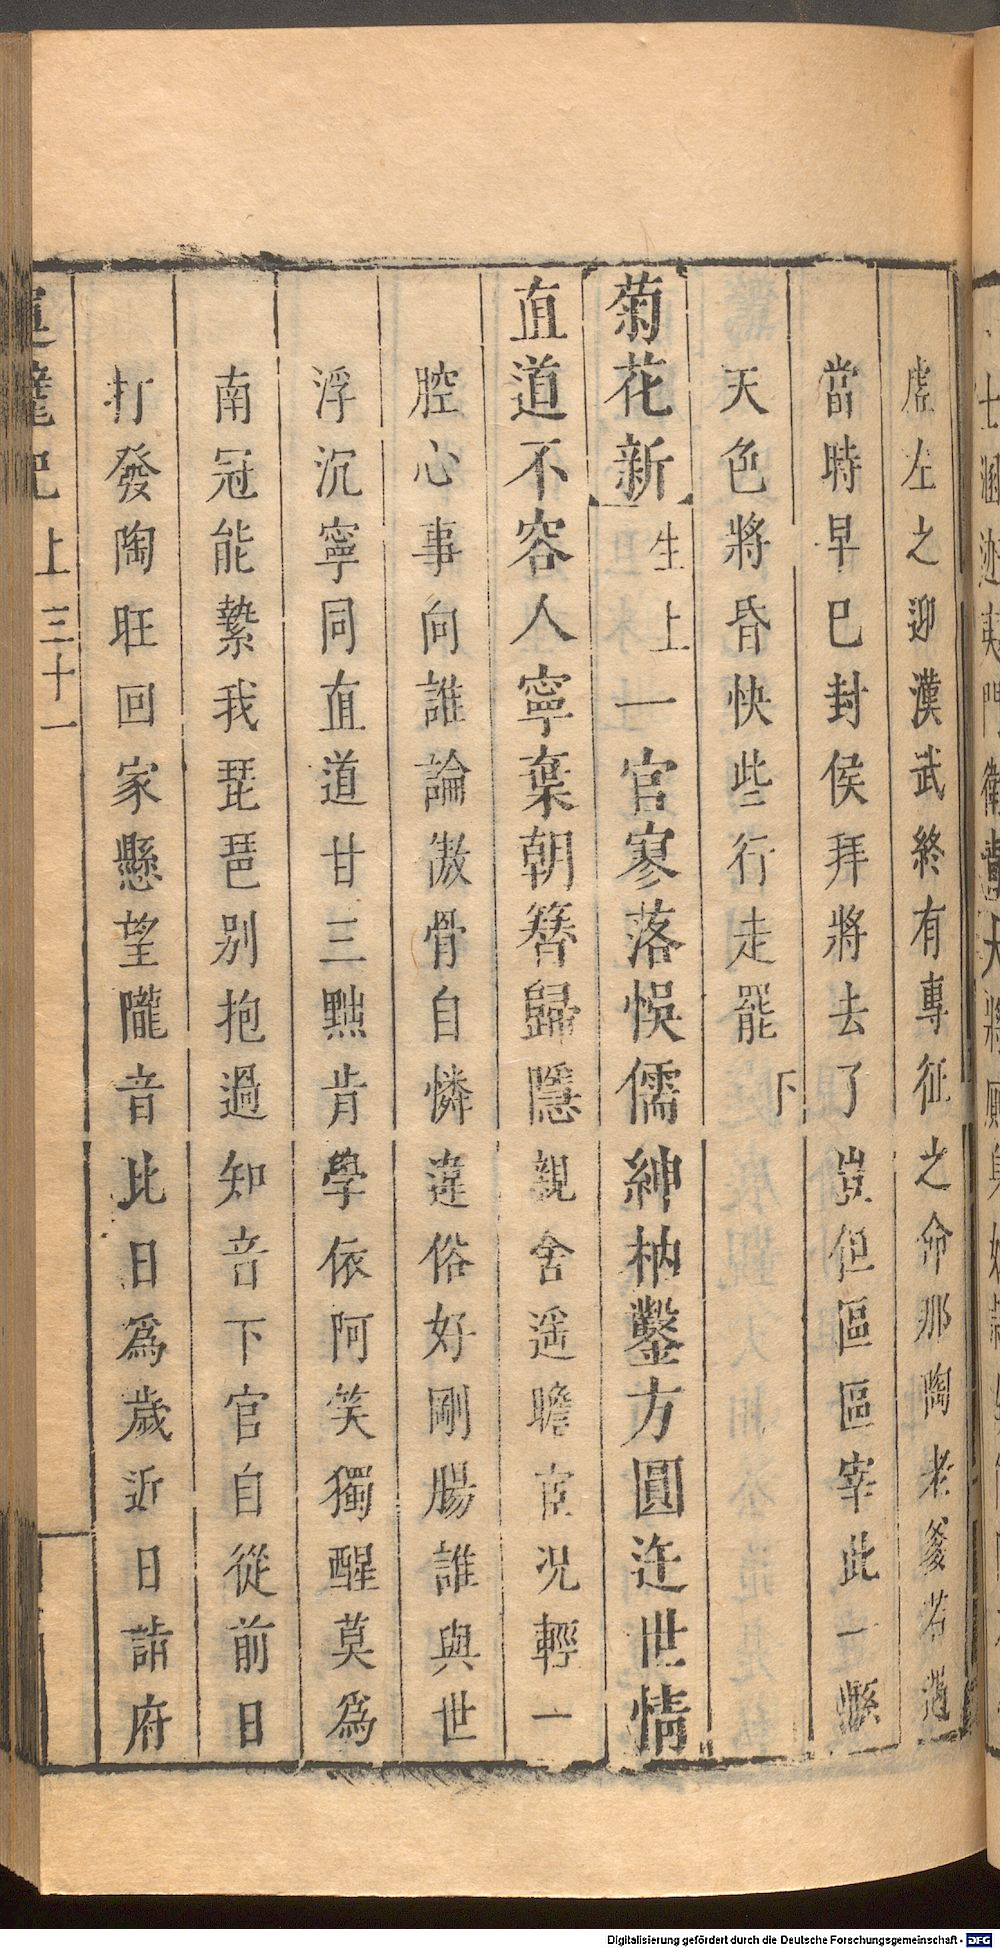 虛左之迎漢武終有專征之命那陶老爹若遇
當時早已封侯拜將去了豈但區區宰此一縣
天色將昏快些行走罷 下
菊花新 生上 一官寥落悞儒紳枘鑿方圓迕世情
直道不容人寧棄朝簪歸隱 親舍遥瞻宦况輕一
腔心事向誰論傲骨自憐違俗好剛腸誰與世
浮沉寧同直道甘三黜肯學依阿笑獨醒莫為
南冠能縶我琵琶别抱過知音下官自從前日
打發陶旺回家懸望隴音比日為歲近日詣府
上 三十一
Digitalisierung gefördert durch die Deutsche Forschungsgemeinschaft - DFG